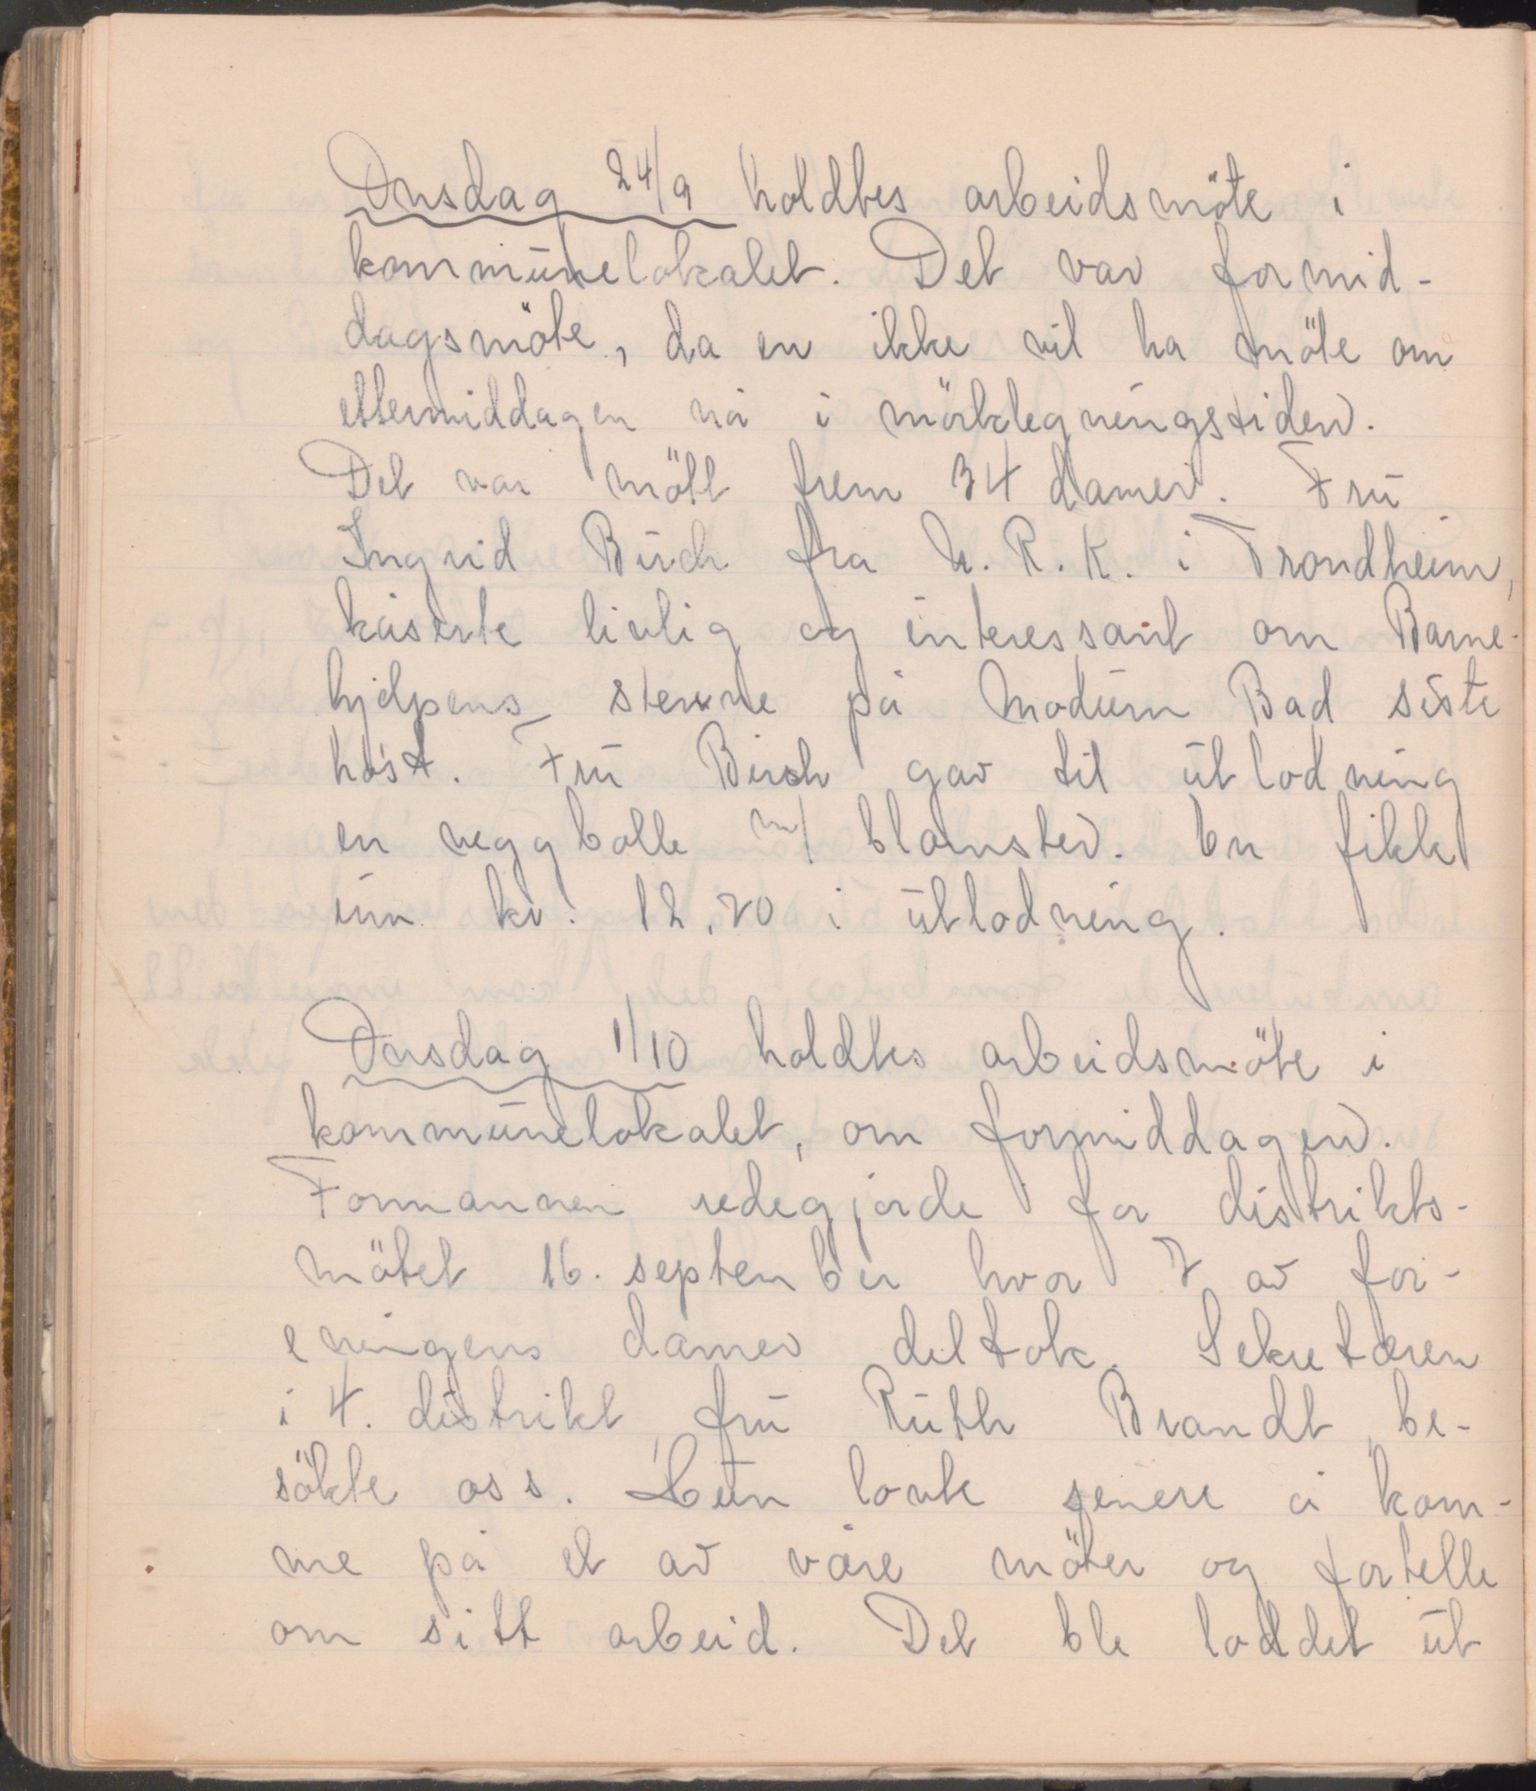 Onsdag 24/9 holdtes arbeidsmöte i
kommunelokalet. Det var formid-
dagsmöte, da en ikke vil ha möte om
ettermiddagen nå i mörklegningstiden.
Det var mött frem 34 damer. Fru
Ingrid Birch fra N. R. K. i Trondheim,
kåserte livlig og interessant om Barne-
hjelpens stevne på Modum Bad siste
höst. Fru Birch gav til utlodning
en veggbolle m/ blomster. En fikk
inn kr. 12,70 i utlodning.
Onsdag 1/10 holdtes arbeidsmöte i
kommunelokalet, om formiddagen.
Formannen redegjorde for distrikts-
mötet 16. september hvor 7 av for-
eningens damer deltok. Sekretæren
i 4. distrikt, fru Ruth Brandt be-
sökte oss. Hun lovte senere å kom-
me på et av våre möter og fortelle
om sitt arbeid. Det ble loddet ut